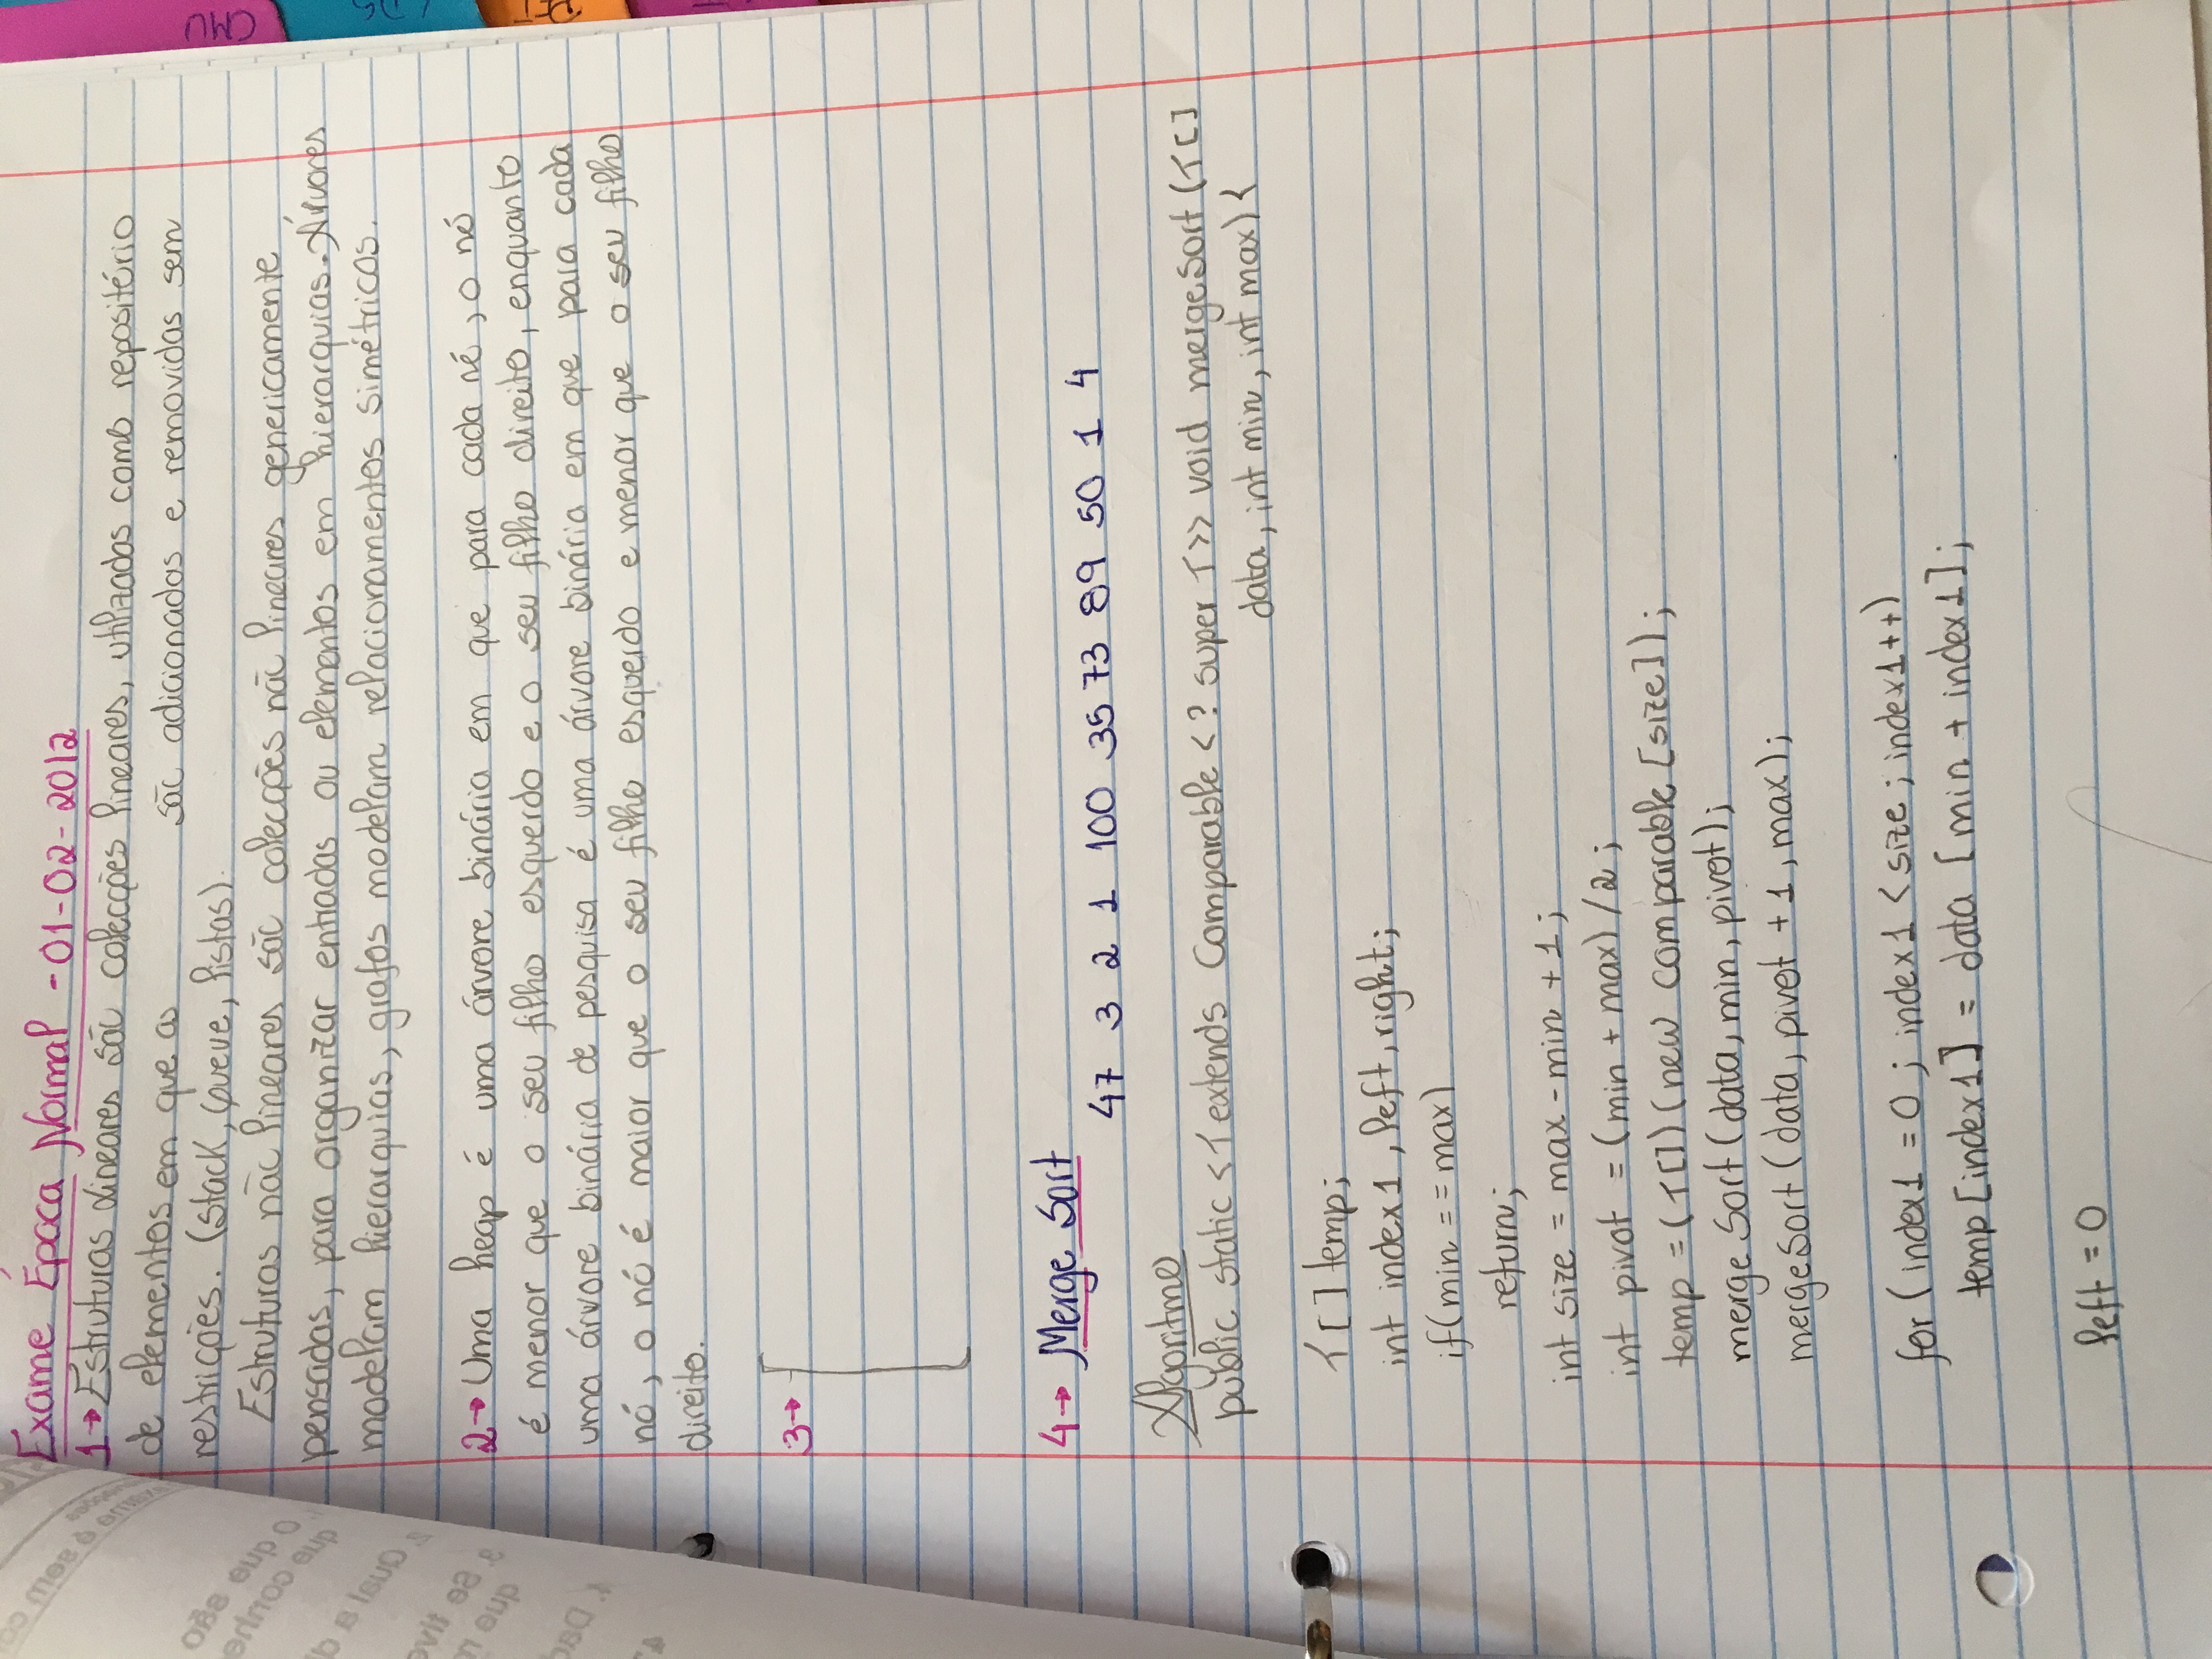 Exame Época Normal - 01-02-2012
1→ Estruturas Lineares são colecções lineares, utilizadas como repositório
de elementos em que as são adicionadas e removidas sem
restrições. (Stack, Queue, listas).
Estruturas não lineares são colecções não lineares genericamente
pensadas, para organizar entradas ou elementos em hierarquias. Árvores
modelam hierarquias, grafos modelam relacionamentos simétricos.
2→ Uma heap é uma árvore binária em que para cada nó, o nó
é menor que o seu filho esquerdo e o seu filho direito, enquanto
uma árvore binária de pesquisa é uma árvore binária em que para cada
nó, o nó é maior que o seu filho esquerdo e menor que o seu filho
direito.
3→
4→ Merge Sort
47 3 2 1 100 35 73 89 50 1 4
Algoritmo
public static <T extends Comparable <? super T>> void mergeSort (T[]
data, int min, int max) {
T[] temp;
int index1, left, right;
if(min == max)
return;
int size = max - min + 1;
int pivot = (min + max) / 2;
temp = (T[]) (new comparable [size]);
merge Sort (data, min, pivot);
mergeSort (data, pivot + 1, max);
for (index1 = 0; index1 < size; index1++)
temp [index1] = data [min + index1];
left = 0
CMU
O que são
que conhe
2. Qual a d
3. Se tive
que
4. Dad